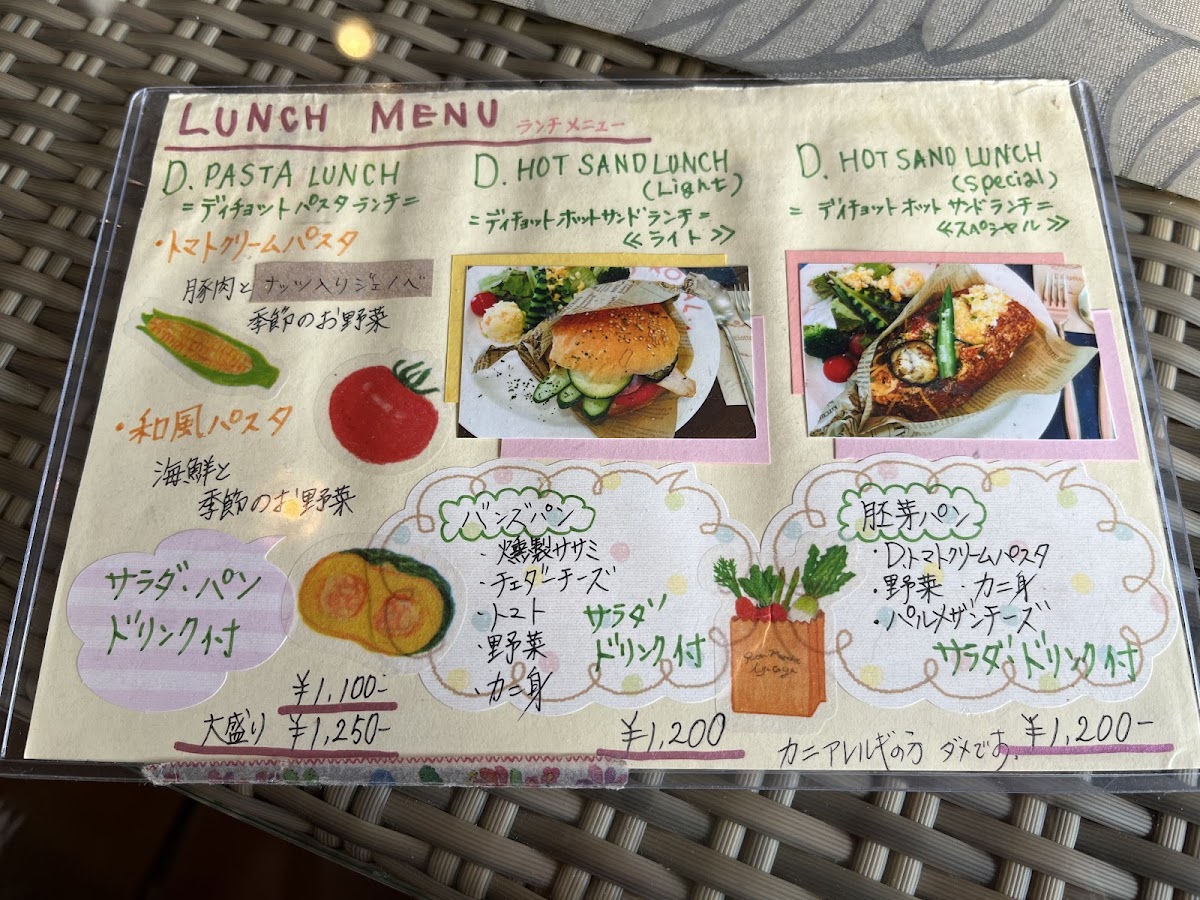 LUNCH MENU ランチメニュー
D. PASTA LUNCH
=ディチョットパスタランチ=
・トマトクリームパスタ
豚肉とナッツ入りジェノベ
季節のお野菜
・和風パスタ
海鮮と
季節のお野菜
サラダ・パン
ドリンク付
¥1,100-
大盛り ¥1,250-
D. HOT SAND LUNCH
(Light)
=ディチョットホットサンドランチ=
≪ライト≫
バンズパン
・燻製ササミ
・チェダーチーズ
・トマト
・野菜
・カニ身
サラダ
ドリンク付
¥1,200
D. HOT SAND LUNCH
(Special)
=ディチョットホットサンドランチ=
≪スペシャル≫
胚芽パン
・D.トマトクリームパスタ
・野菜・カニ身
・パルメザンチーズ
サラダ・ドリンク付
¥1,200-
カニアレルギの方 ダメです。